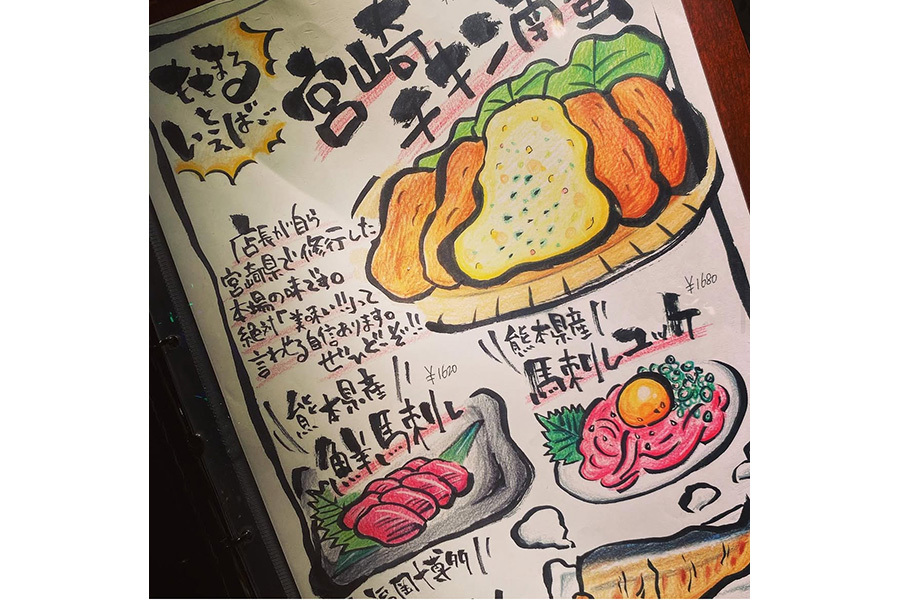 まる
といえば
宮崎
チキン南蛮
店長が自ら
宮崎県で修行した
本場の味です。
絶対「美味い!!」って
言わせる自信あります。
ぜひどーぞ!!
¥1680
熊本県産
馬刺しユッケ
¥1620
熊本県産
鮮馬刺し
福岡博多